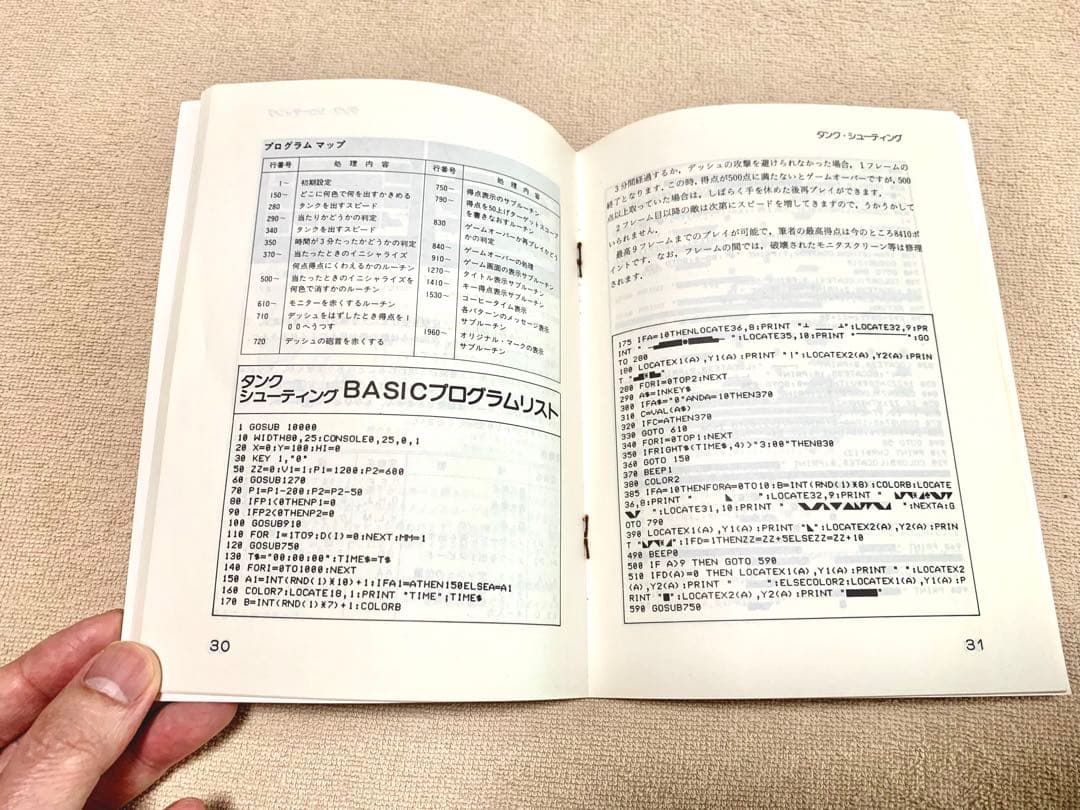 プログラム マップ
行番号 処理内容
1～ 初期設定
150～ どこに何色で何を出すかきめる
280 タンクを出すスピード
290～ 当たりかどうかの判定
340 タンクを出すスピード
350 時間が3分たったかどうかの判定
370～ 当たったときのイニシャライズ
何点得点にくわえるかのルーチン
500～ 当たったときのイニシャライズを
何色で消すかのルーチン
610～ モニターを赤くするルーチン
710 デッシュをはずしたとき得点を1
00へうつす
720 デッシュの砲首を赤くする
行番号 処理内容
750～ 得点表示のサブルーチン
790～ 得点を50上げターゲットスコープ
を書きなおすルーチン
830 ゲームオーバーか再プレイかどう
かの判定
840～ ゲームオーバーの処理
910～ ゲーム画面の表示サブルーチン
1270～ タイトル表示サブルーチン
1410～ キー得点表示サブルーチン
1530～ コーヒータイム表示
各パターンのメッセージ表示
サブルーチン
1960～ オリジナル・マークの表示
サブルーチン
タンク
シューティング BASICプログラムリスト
1 GOSUB 10000
10 WIDTH80,25:CONSOLE0,25,0,1
20 X=0:Y=100:HI=0
30 KEY 1,"0"
50 ZZ=0:V1=1:P1=1200:P2=600
60 GOSUB1270
70 P1=P1-200:P2=P2-50
80 IFP1<0THENP1=0
90 IFP2<0THENP2=0
100 GOSUB910
110 FOR I=1TO9:D(I)=0:NEXT:MM=1
120 GOSUB750
130 T$="00:00:00":TIME$=T$
140 FORI=0TO1000:NEXT
150 A1=INT(RND(1)*10)+1:IFA1=ATHEN150ELSEA=A1
160 COLOR7:LOCATE18,1:PRINT "TIME";TIME$
170 B=INT(RND(1)*7)+1:COLORB
30
タンク・シューティング
3分間経過するか，デッシュの攻撃を避けられなかった場合，1フレームの
終了となります。この時，得点が500点に満たないとゲームオーバーですが，500
点以上取っていた場合は，しばらく手を休めた後再プレイができます。
2フレーム目以降の敵は次第にスピードを増してきますので，うかうかして
いられません。
最高9フレームまでのプレイが可能で，筆者の最高得点は今のところ8410ポ
イントです．なお，フレームの間では，破壊されたモニタスクリーン等は修理
されます。
175 IFA=10THENLOCATE36,8:PRINT "┴ ___ ┴":LOCATE32,9:PR
INT " ":LOCATE35,10:PRINT " ":GO
TO 280
180 LOCATEX1(A),Y1(A):PRINT "|":LOCATEX2(A),Y2(A):PRIN
T " "
280 FORI=0TOP2:NEXT
290 A$=INKEY$
300 IFA$="0"ANDA=10THEN370
310 C=VAL(A$)
320 IFC=ATHEN370
330 GOTO 610
340 FORI=0TOP1:NEXT
350 IFRIGHT$(TIME$,4)>"3:00"THEN830
360 GOTO 150
370 BEEP1
380 COLOR2
385 IFA=10THENFORA=0TO10:B=INT(RND(1)*8):COLORB:LOCATE
36,8:PRINT " ◣ ":LOCATE32,9:PRINT "
":LOCATE31,10:PRINT " ":NEXTA:G
OTO 790
390 LOCATEX1(A),Y1(A):PRINT "◣":LOCATEX2(A),Y2(A):PRIN
T " ":IFD=1THENZZ=ZZ+5ELSEZZ=ZZ+10
490 BEEP0
500 IF A>9 THEN GOTO 590
510 IFD(A)=0 THEN LOCATEX1(A),Y1(A):PRINT " ":LOCATEX2
(A),Y2(A):PRINT " ":ELSECOLOR2:LOCATEX1(A),Y1(A):P
RINT "■":LOCATEX2(A),Y2(A):PRINT "■■■■■"
590 GOSUB750
31